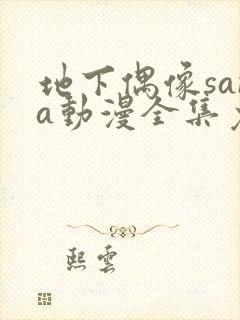 地下偶像sa
a动漫全集
熙雲